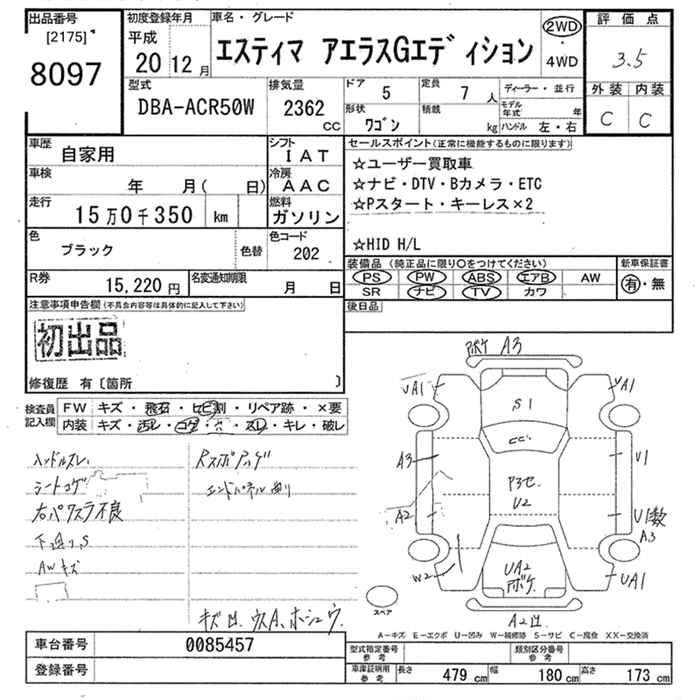 出品番号 初度登録年月 車名・グレード 評価点
[2175] 平成
8097 20 12月 エスティマ アエラスGエディション 2WD・4WD 3.5
型式 排気量 ドア 5 定員 7人 ディーラー・並行 外装 内装
DBA-ACR50W 2362 cc 形状 ワゴン 積載 kg モデル年式 年 C C
ハンドル 左・右
車歴 自家用 シフト IAT セールスポイント(正常に機能するものに限ります)
車検 年 月( 日) 冷房 AAC ☆ユーザー買取車
走行 15万0千350 km 燃料 ガソリン ☆ナビ・DTV・Bカメラ・ETC
☆Pスタート・キーレス×2
色 ブラック 色替 色コード 202 ☆HID H/L
R券 15,220円 名変通知期限 月 日 装備品(純正品に限り○をつけてください) 新車保証書
PS PW ABS エアB AW 有・無
SR ナビ TV カワ
注意事項申告欄(不具合内容等は具体的に記入して下さい) 後日品
初出品
修復歴 有〔箇所 〕
検査員記入欄 FW キズ・飛石・ヒビ割・リペア跡・×要
内装 キズ・汚レ・コゲ・穴・スレ・キレ・破レ
ハンドルスレ
シートコゲ
右パワスラ不良
下廻りS
AWキズ
ボケ A3
UA1 A1
S1
A3 U1
U2
A2 U1数
A3
W2 UA2 UA1
ボケ
スペア
A2凹
A-キズ E-エクボ U-凹み W-補修跡 S-サビ C-腐食 XX-交換済
車台番号 0085457 型式指定番号 参考 類別区分番号 参考
登録番号 車庫証明用 参考 長さ 479 cm 幅 180 cm 高さ 173 cm